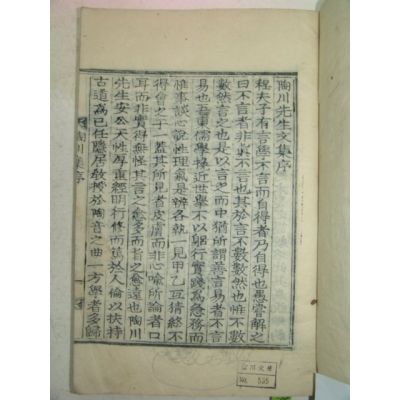 陶川先生文集序
程夫子有言經不言而自得者乃自得也愚嘗解之
曰不言者非眞不言也其於言不數數然也惟不數
數然言之也是以言之而中猶所謂善言易者不言
易也吾東儒學接近世學不以躬行實踐為急務而
惟事談心說性理氣是辨各執一見甲乙互猜終不
得會之于一蓋其所見者皮膚而非心喻所論者口
耳而非實得無怪其言之愈多而旨之愈遠也陶川
先生安公天性厚重經明行修而篤於人倫以扶持
古道為已任隱居敎授於陶音之曲一方學者多歸
陶川集序
一
No. 535